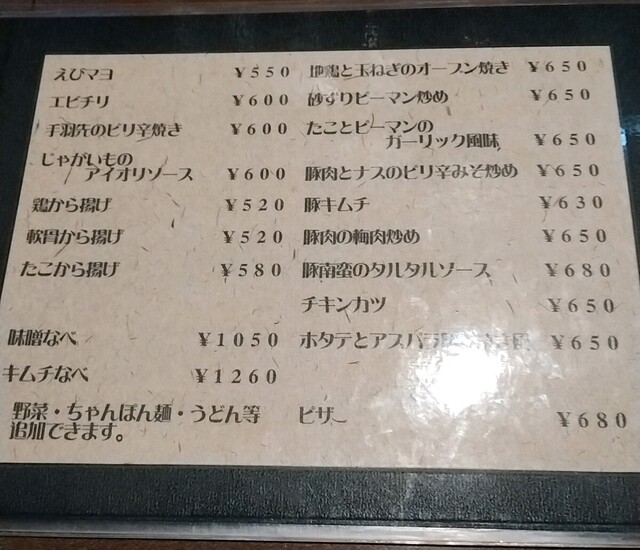 えびマヨ ¥550
エビチリ ¥600
手羽先のピリ辛焼き ¥600
じゃがいもの
アイオリソース ¥600
鶏から揚げ ¥520
軟骨から揚げ ¥520
たこから揚げ ¥580
味噌なべ ¥1050
キムチなべ ¥1260
野菜・ちゃんぽん麺・うどん等
追加できます。
地鶏と玉ねぎのオーブン焼き ¥650
砂ずりピーマン炒め ¥650
たことピーマンの
ガーリック風味 ¥650
豚肉とナスのピリ辛みそ炒め ¥650
豚キムチ ¥630
豚肉の梅肉炒め ¥650
豚南蛮のタルタルソース ¥680
チキンカツ ¥650
ホタテとアスパラ ¥650
ピザ ¥680